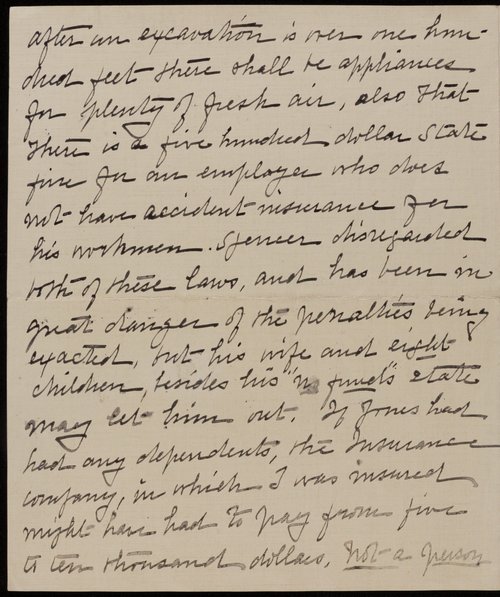 after an excavation is over one hun-
dred feet there shall be appliances
for plenty of fresh air, also that
there is a five hundred dollar State
fine for an employer who does
not have accident insurance for
his workmen. Spencer disregarded
both of these laws, and has been in
great danger of the penalties being
exacted, but his wife and eight
children, besides his "no funds" state
may let him out. If Jones had
had any dependents, the Insurance
company, in which I was insured
might have had to pay from five
to ten thousand dollars. Not a person